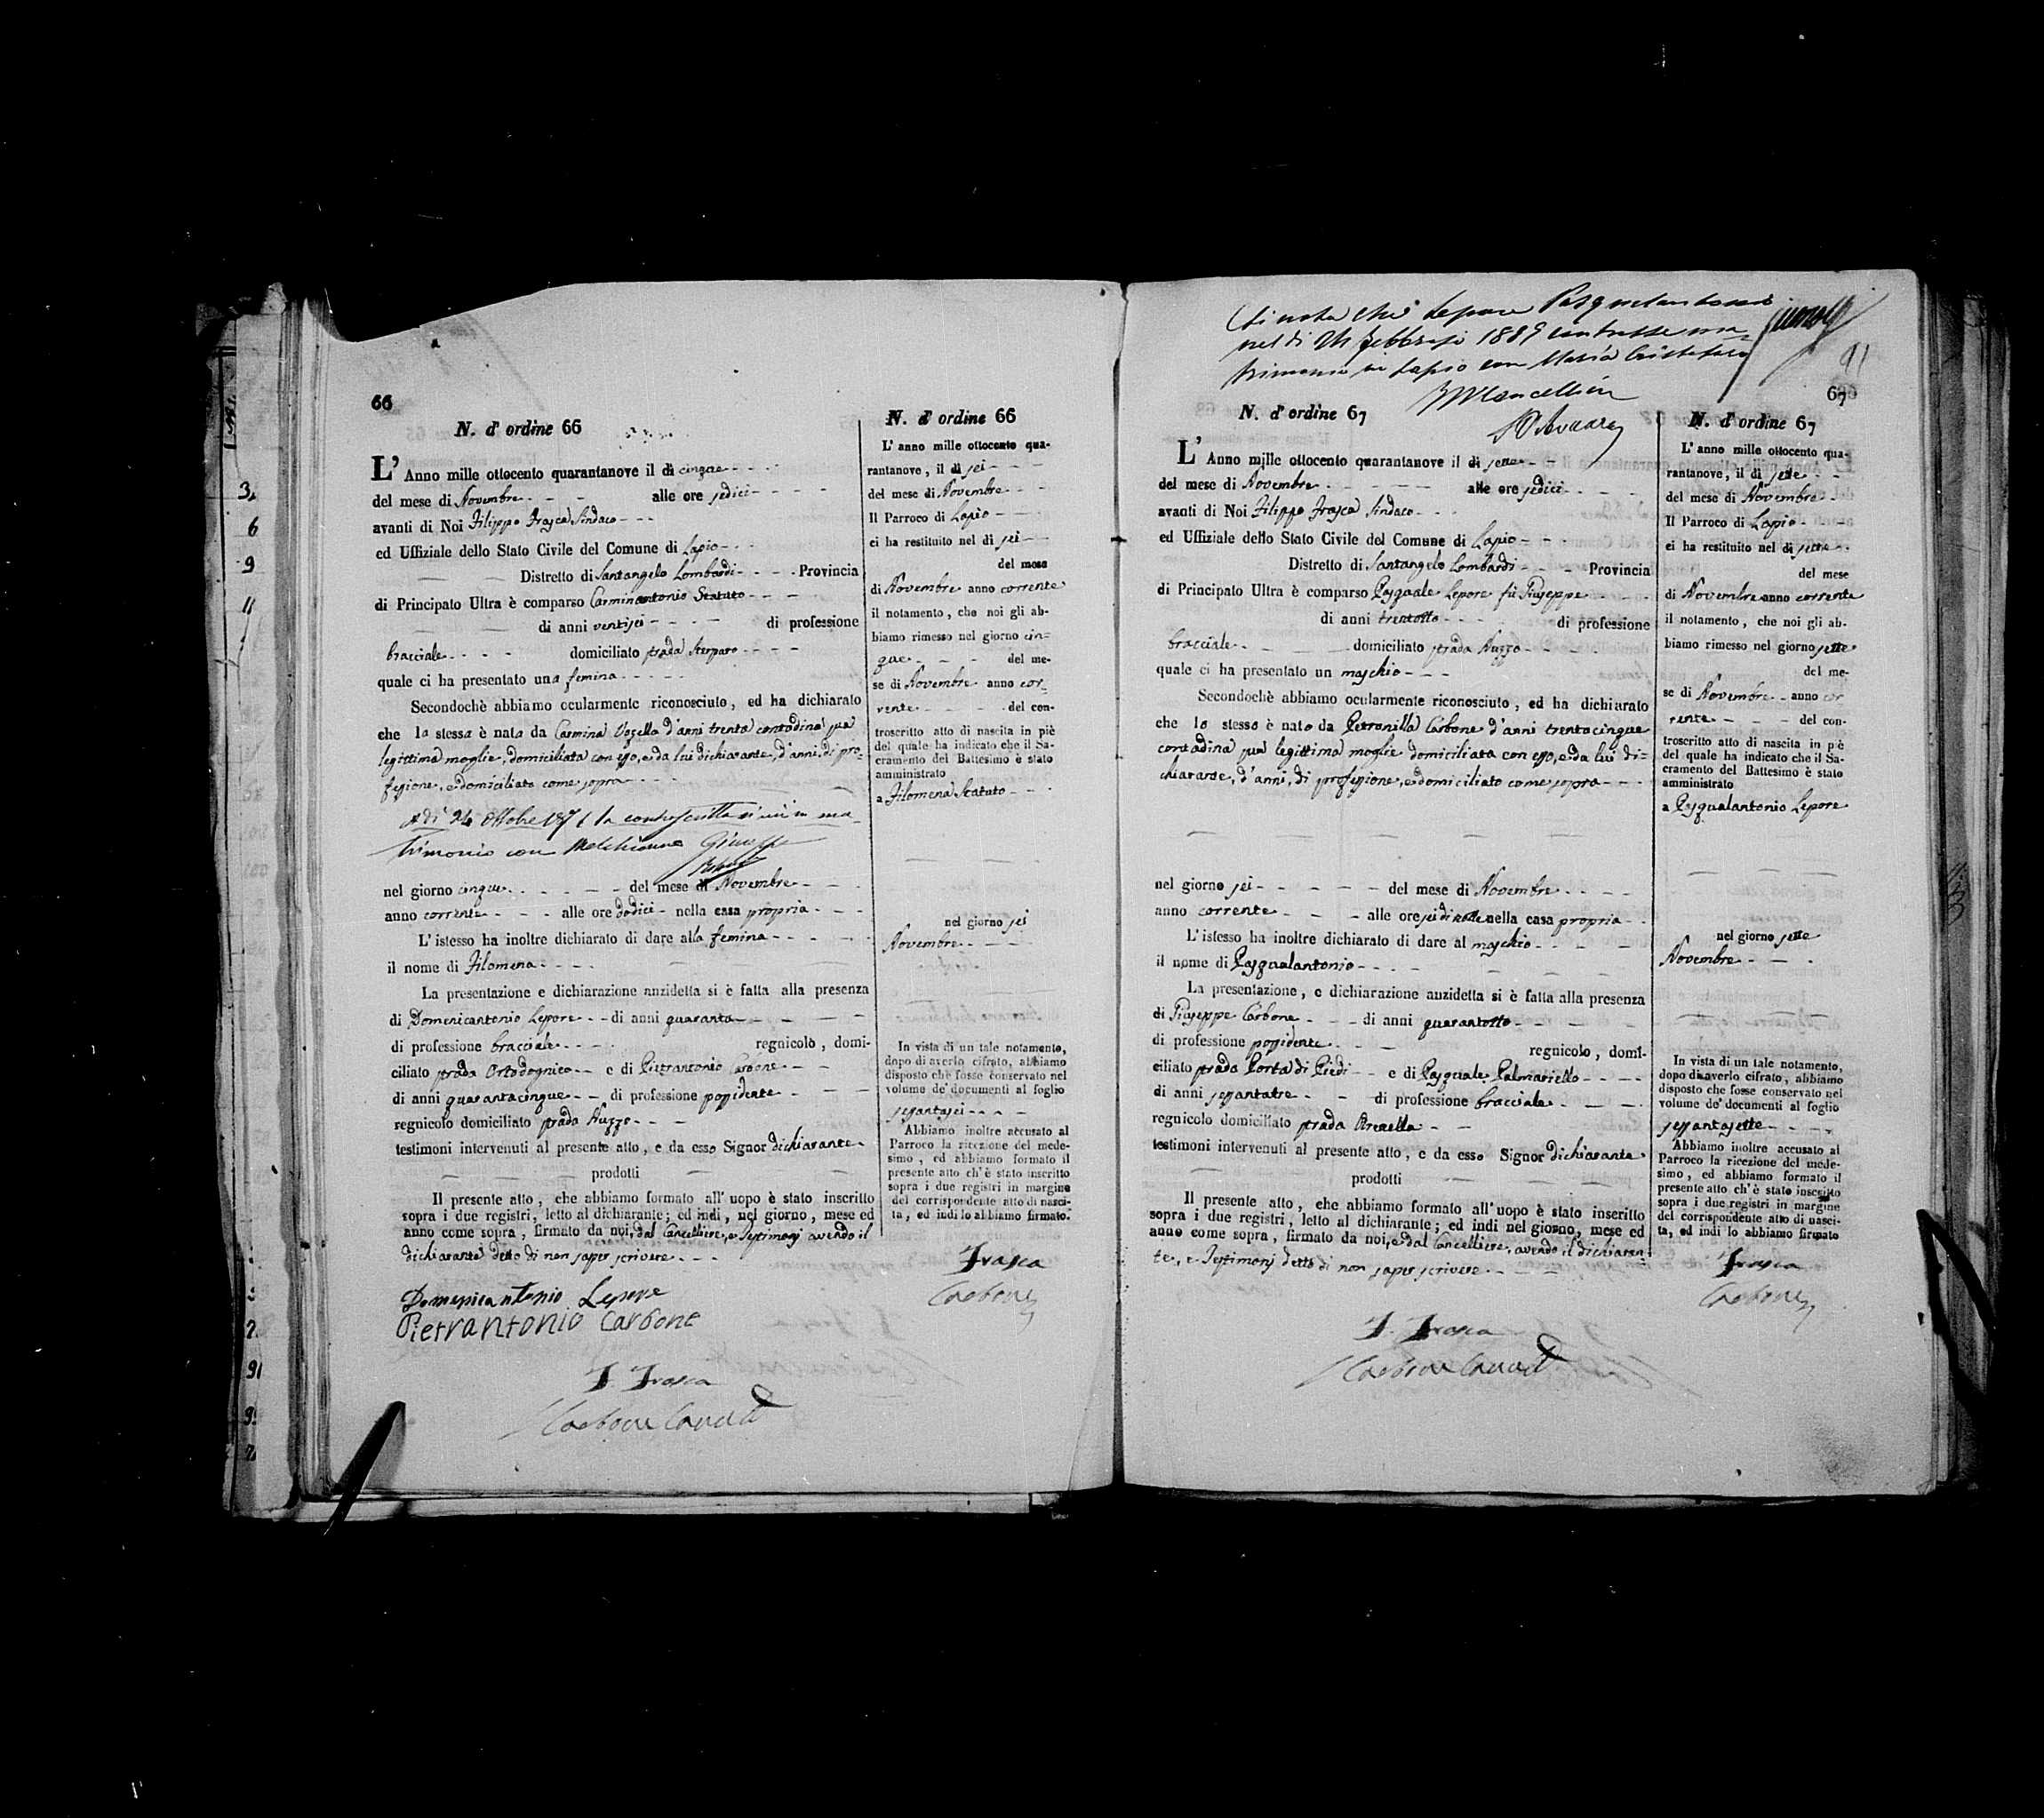 66
N. d' ordine 66
L' Anno mille ottocento quarantanove il dì cinque
del mese di Novembre alle ore sedici
avanti di Noi Filippo Frasca Sindaco
ed Uffiziale dello Stato Civile del Comune di Lapio
Distretto di Santangelo Lombardi Provincia
di Principato Ultra è comparso Carminantonio Statuto
di anni ventisei di professione
bracciale domiciliato strada Sterparo
quale ci ha presentato una femina
Secondochè abbiamo ocularmente riconosciuto, ed ha dichiarato
che la stessa è nata da Carmina Vozella d'anni trenta contadina sua
legittima moglie, domiciliata con esso, e da lui dichiarante, d'anni, di pro-
fessione, e domiciliato come sopra
A dì 24 Ottobre 1871 la controscritta si unì in ma-
trimonio con Melchionna Giuseppe
nel giorno cinque del mese di Novembre
anno corrente alle ore dodici nella casa propria
L' istesso ha inoltre dichiarato di dare alla femina
il nome di Filomena
La presentazione e dichiarazione anzidetta si è fatta alla presenza
di Domenicantonio Lepore di anni quaranta
di professione bracciale regnicolo, domi-
ciliato strada Ortodognico e di Pietrantonio Carbone
di anni quarantacinque di professione possidente
regnicolo domiciliato strada Nuzzo
testimoni intervenuti al presente atto, e da esso Signor dichiarante
prodotti
Il presente atto, che abbiamo formato all' uopo è stato inscritto
sopra i due registri, letto al dichiarante; ed indi, nel giorno, mese ed
anno come sopra, firmato da noi, dal Cancelliere, e Testimonj avendo il
dichiarante detto di non saper scrivere
Domenicantonio Lepore
Pietrantonio Carbone
F Frasca
Carbone
N. d' ordine 66
L' anno mille ottocento qua-
rantanove, il dì sei
del mese di Novembre
Il Parroco di Lapio
ci ha restituito nel dì sei
del mese
di Novembre anno corrente
il notamento, che noi gli ab-
biamo rimesso nel giorno cin=
que del me-
se di Novembre anno cor-
rente del con-
troscritto atto di nascita in piè
del quale ha indicato che il Sa-
cramento del Battesimo è stato
amministrato
a Filomena Statuto
nel giorno sei
Novembre
In vista di un tale notamento,
dopo di averlo cifrato, abbiamo
disposto che fosse conservato nel
volume de' documenti al foglio
sessantasei
Abbiamo inoltre accusato al
Parroco la ricezione del mede-
simo, ed abbiamo formato il
presente atto ch' è stato inscritto
sopra i due registri in margine
del corrispondente atto di nasci-
ta, ed indi lo abbiamo firmato.
Frasca
Carbone
Si nota che Lepore Pasqualantonio
nel dì 24 febbrajo 1889 contrasse ma-
trimonio in Lapio con Maria Cristofaro
91
67
N. d' ordine 67
L' Anno mille ottocento quarantanove il dì sette
del mese di Novembre alle ore sedici
avanti di Noi Filippo Frasca Sindaco
ed Uffiziale dello Stato Civile del Comune di Lapio
Distretto di Santangelo Lombardi Provincia
di Principato Ultra è comparso Pasquale Lepore fù Giuseppe
di anni trentotto di professione
bracciale domiciliato strada Nuzzo
quale ci ha presentato un maschio
Secondochè abbiamo ocularmente riconosciuto, ed ha dichiarato
che lo stesso è nato da Petronilla Carbone d'anni trentacinque
contadina sua legittima moglie domiciliata con esso, e da lui di-
chiarante, d'anni, di professione, e domiciliato come sopra
nel giorno sei del mese di Novembre
anno corrente alle ore sei di notte nella casa propria
L' istesso ha inoltre dichiarato di dare al maschio
il nome di Pasqualantonio
La presentazione, e dichiarazione anzidetta si è fatta alla presenza
di Giuseppe Carbone di anni quarantotto
di professione possidente regnicolo, domi-
ciliato strada Porta di Piedi e di Pasquale Palmariello
di anni sessantatre di professione bracciale
regnicolo domiciliato strada Arenella
testimoni intervenuti al presente atto, e da esso Signor dichiarante
prodotti
Il presente atto, che abbiamo formato all' uopo è stato inscritto
sopra i due registri, letto al dichiarante; ed indi nel giorno, mese ed
anno come sopra, firmato da noi, e dal Cancelliere, avendo il dichiaran-
te, e Testimonj detto di non saper scrivere
F. Frasca
Carbone
N. d' ordine 67
L' anno mille ottocento qua-
rantanove, il dì sette
del mese di Novembre
Il Parroco di Lapio
ci ha restituito nel dì sette
del mese
di Novembre anno corrente
il notamento, che noi gli ab-
biamo rimesso nel giorno sette
del me-
se di Novembre anno cor
rente del con-
troscritto atto di nascita in piè
del quale ha indicato che il Sa-
cramento del Battesimo è stato
amministrato
a Pasqualantonio Lepore
nel giorno sette
Novembre
In vista di un tale notamento,
dopo di averlo cifrato, abbiamo
disposto che fosse conservato nel
volume de' documenti al foglio
sessantasette
Abbiamo inoltre accusato al
Parroco la ricezione del mede-
simo, ed abbiamo formato il
presente atto ch' è stato inscritto
sopra i due registri in margine
del corrispondente atto di nasci-
ta, ed indi lo abbiamo firmato
Frasca
Carbone